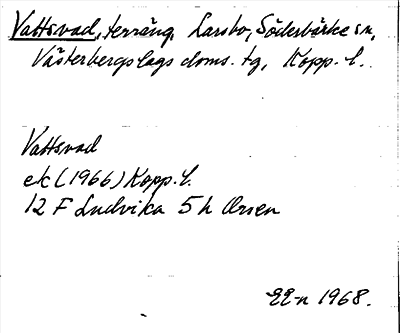 Vattsvad, terräng, Larsbo, Söderbärke sn,
Västerbergslags doms. tg, Kopp. l.
Vattsvad
ek (1966) Kopp. l.
12 F Ludvika 5 h Orsen
EE-n 1968.